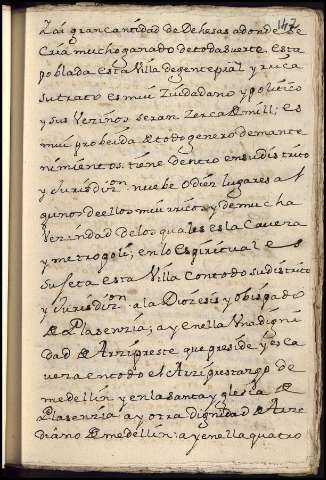 147
Zai gran cantidad de Dehesas adonde se
Cria mucho ganado de toda suerte. Esta
poblada esta Villa de gente pial y rica
su trato es mui Ziudadano y politico
y sus Vezinos seran Zerca de mill; es
mui probeida de todo genero de mante
nimientos. tiene dentro en su distrito
y Jurisdizion nuebe o diez lugares al
gunos de ellos mui ricos y de mucha
Vezindad de los quales es la Cavera
y metropoli; en lo Espiritual es
sujeta esta Villa Con todo su distrito
y Jurisdizion a la Diozesis y obispado
de Plasenzia; ay en ella Una digni
dad de Arzipreste que preside y es ca
vera en todo el Arziprestazgo de
medellin y en la santa yglesia de
Plasenzia ay otra dignidad de Arze
diano de medellin: ay en ella quatro